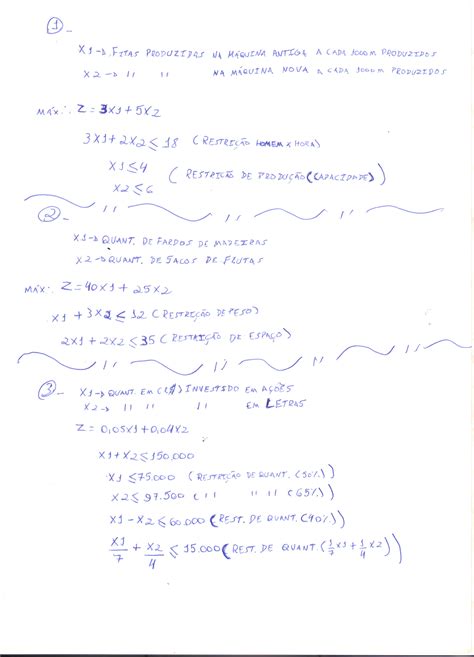 ① -
X1 → FITAS PRODUZIDAS NA MÁQUINA ANTIGA A CADA 1000m PRODUZIDOS
X2 → 11 11 NA MÁQUINA NOVA A CADA 1000m PRODUZIDOS
MÁX: Z = 3X1 + 5X2
3X1 + 2X2 ≤ 18 (RESTRIÇÃO HOMEM X HORA)
X1 ≤ 4
X2 ≤ 6 (RESTRIÇÃO DE PRODUÇÃO (CAPACIDADE))
② -
X1 → QUANT. DE FARDOS DE MADEIRAS
X2 → QUANT. DE SACOS DE FLUTAS
MÁX: Z = 40X1 + 25X2
X1 + 3X2 ≤ 12 (RESTRIÇÃO DE PESO)
2X1 + 2X2 ≤ 35 (RESTRIÇÃO DE ESPAÇO)
③ - X1 → QUANT. EM (R$) INVESTIDO EM AÇÕES
X2 → 11 11 11 EM LETRAS
Z = 0,05X1 + 0,04X2
X1 + X2 ≤ 150.000
X1 ≤ 75.000 (RESTRIÇÃO DE QUANT. (50%))
X2 ≤ 97.500 (11 11 11 (65%))
X1 - X2 ≤ 60.000 (REST. DE QUANT. (40%))
X1/7 + X2/4 ≤ 15.000 (REST. DE QUANT. (1/7 X1 + 1/4 X2))